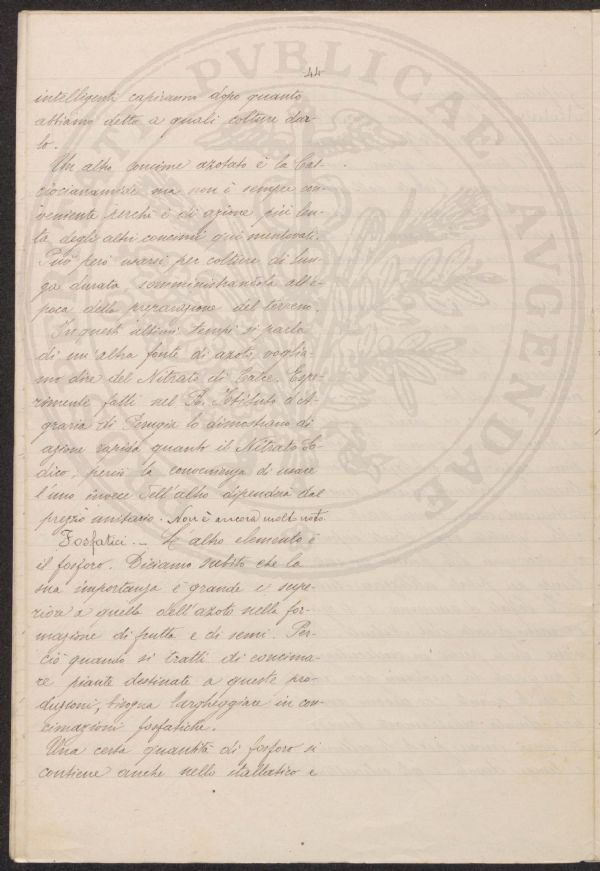 44
intelligenti capiranno dopo quanto
abbiamo detto a quali colture dar-
lo.
Un altro concime azotato è la Cal-
ciocianamide ma non è sempre con-
veniente perchè è di azione più len-
ta degli altri concimi qui mentovati.
Può però usarsi per colture di lun-
ga durata, somministrandola all'e-
poca della preparazione del terreno.
In questi ultimi tempi si parla
di un'altra fonte di azoto, voglia-
mo dire del Nitrato di Calce. Espe-
rimenti fatti nel R. Istituto d'A-
graria di Perugia lo dimostrano di
azione rapida quanto il Nitrato So-
dico, perciò la convenienza di usare
l'uno invece dell'altro dipenderà dal
prezzo unitario. Non è ancora molto noto.
Fosfatici. — L'altro elemento è
il fosforo. Diciamo subito che la
sua importanza è grande e supe-
riore a quella dell'azoto nella for-
mazione di frutta e di semi. Per-
ciò quando si tratti di concima-
re piante destinate a queste pro-
duzioni, bisogna largheggiare in con-
cimazioni fosfatiche.
Una certa quantità di fosforo si
contiene anche nello stallatico e
PVBLICAE
AVGENDAE